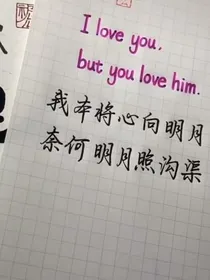 I love you,
but you love him.
我本将心向明月
奈何明月照沟渠